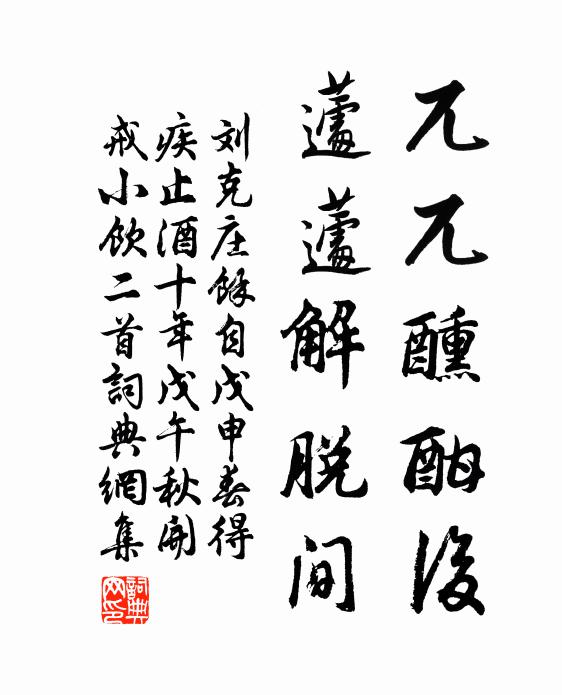 兀兀醺酣後
蘧蘧解脱间
刘克庄馀自戊申春得
疾止酒十年戊午秋開
戒小飲二首詞典網集
詞典网印